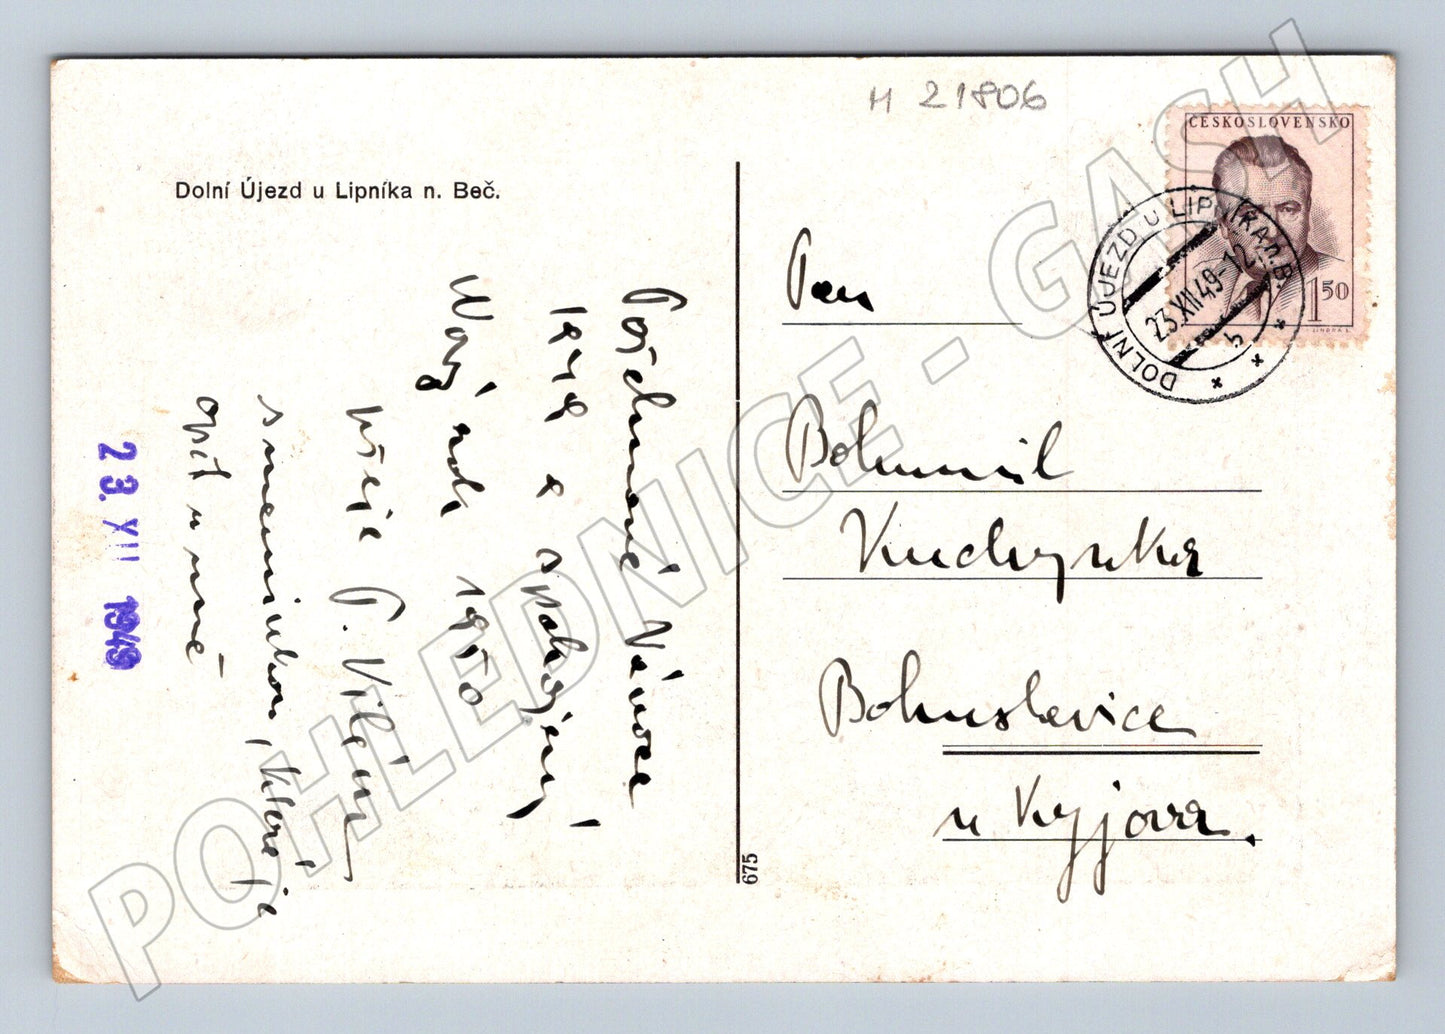 M 21806
ČESKOSLOVENSKO
1 50
DOLNÍ ÚJEZD U LIPNÍKA n. B.
23.XII.49-12
b
Dolní Újezd u Lipníka n. Beč.
Požehnané Vánoce
1949 a spokojený
Nový rok 1950
přeje P. Vilém
s , které je
opět u mně
23. XII 1949
Pan
Bohumil
Kuchynka
Bohuslavice
u Kyjova.
675
POHLEDNICE - GASH